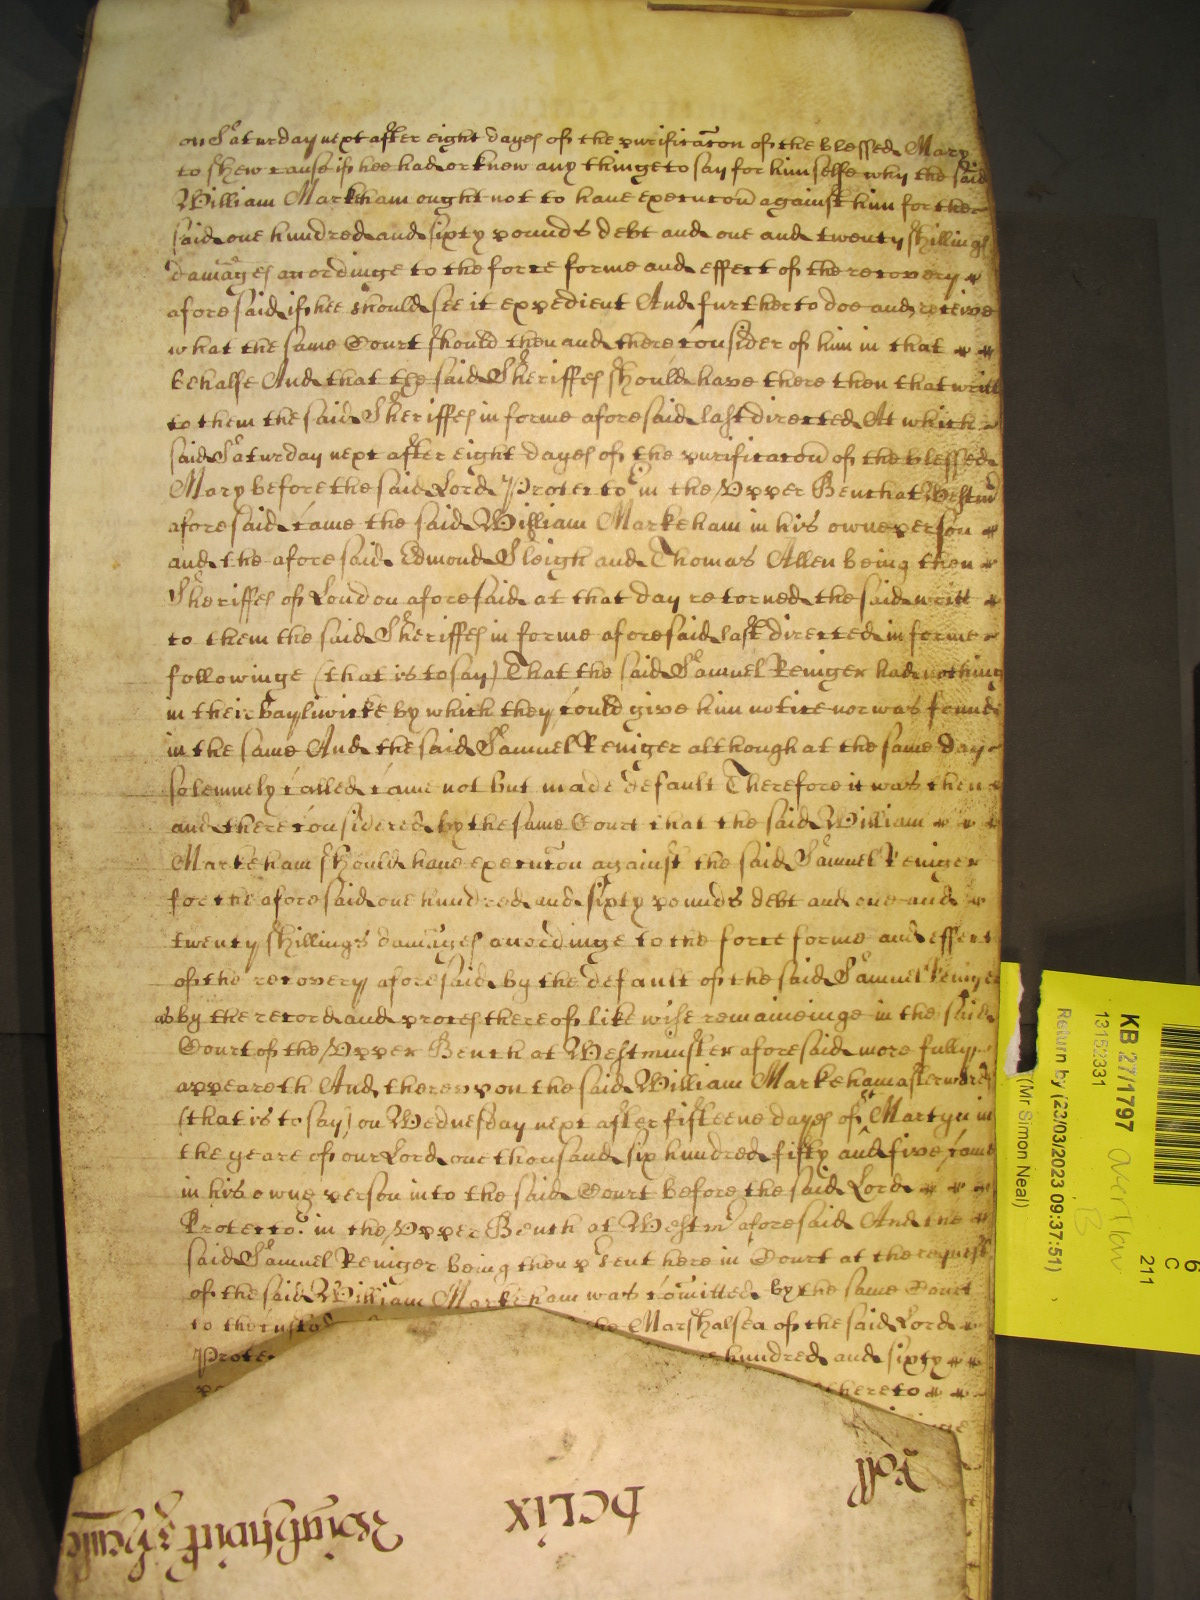 on Saturday next after eight dayes of the purificacon of the blessed Mary
to shew cause if hee had or knew any thinge to say for him selfe why the said
William Markham ought not to have execucon against him for the
said one hundred and sixty pounds debt and one and twenty shillings
damages accordinge to the force forme and effect of the recovery
aforesaid if hee should see it expedient And further to doe and receive
what the same Court should then and there consider of him in that
behalfe And that the said Sheriffes should have there then that writt
to them the said Sheriffes in forme aforesaid last directed At which
said Saturday next after eight dayes of the purificacon of the blessed
Mary before the said Lord Protector in the Upper Bench at Westm
aforesaid came the said William Markeham in his owne person
and the aforesaid Edmond Sleigh and Thomas Allen being then
Sheriffes of London aforesaid at that day retorned the said writt
to them the said Sheriffes in forme aforesaid last directed in forme
followinge (that is to say) That the said Samuel Reniger had nothing
in their Bayliwicke by which they could give him notice nor was found
in the same And the said Samuel Reniger although at the same day
solemnely called came not but made default Therefore it was then
and there considered by the same Court that the said William
Markeham should have execucon against the said Samuel Reniger
for the aforesaid one hundred and sixty pounds debt and one and
twenty shillings damages accordinge to the force forme and effect
of the recovery aforesaid by the default of the said Samuel Reniger
as by the record and proces thereof likewise remaineinge in the said
Court of the Upper Bench at Westminster aforesaid more fully
appeareth And thereupon the said William Markeham afterwards
(that is to say) on Wednesday next after fifteene dayes of St Martyn in
the yeare of our Lord one thousand six hundred fifty and five came
in his owne person into the said Court before the said Lord
Protector in the Upper Bench at Westm aforesaid And the
said Samuel Reniger being then psent here in Court at the request
of the said William Markeham was comitted by the same Court
to the custod the Marshalsea of the said Lord
Prote hundred and sixty
po thereto
Roll
DCLIX
KB 27/1797
13152331
Return by (23/03/2023 09:37:51)
(Mr Simon Neal)
6
C
211
B